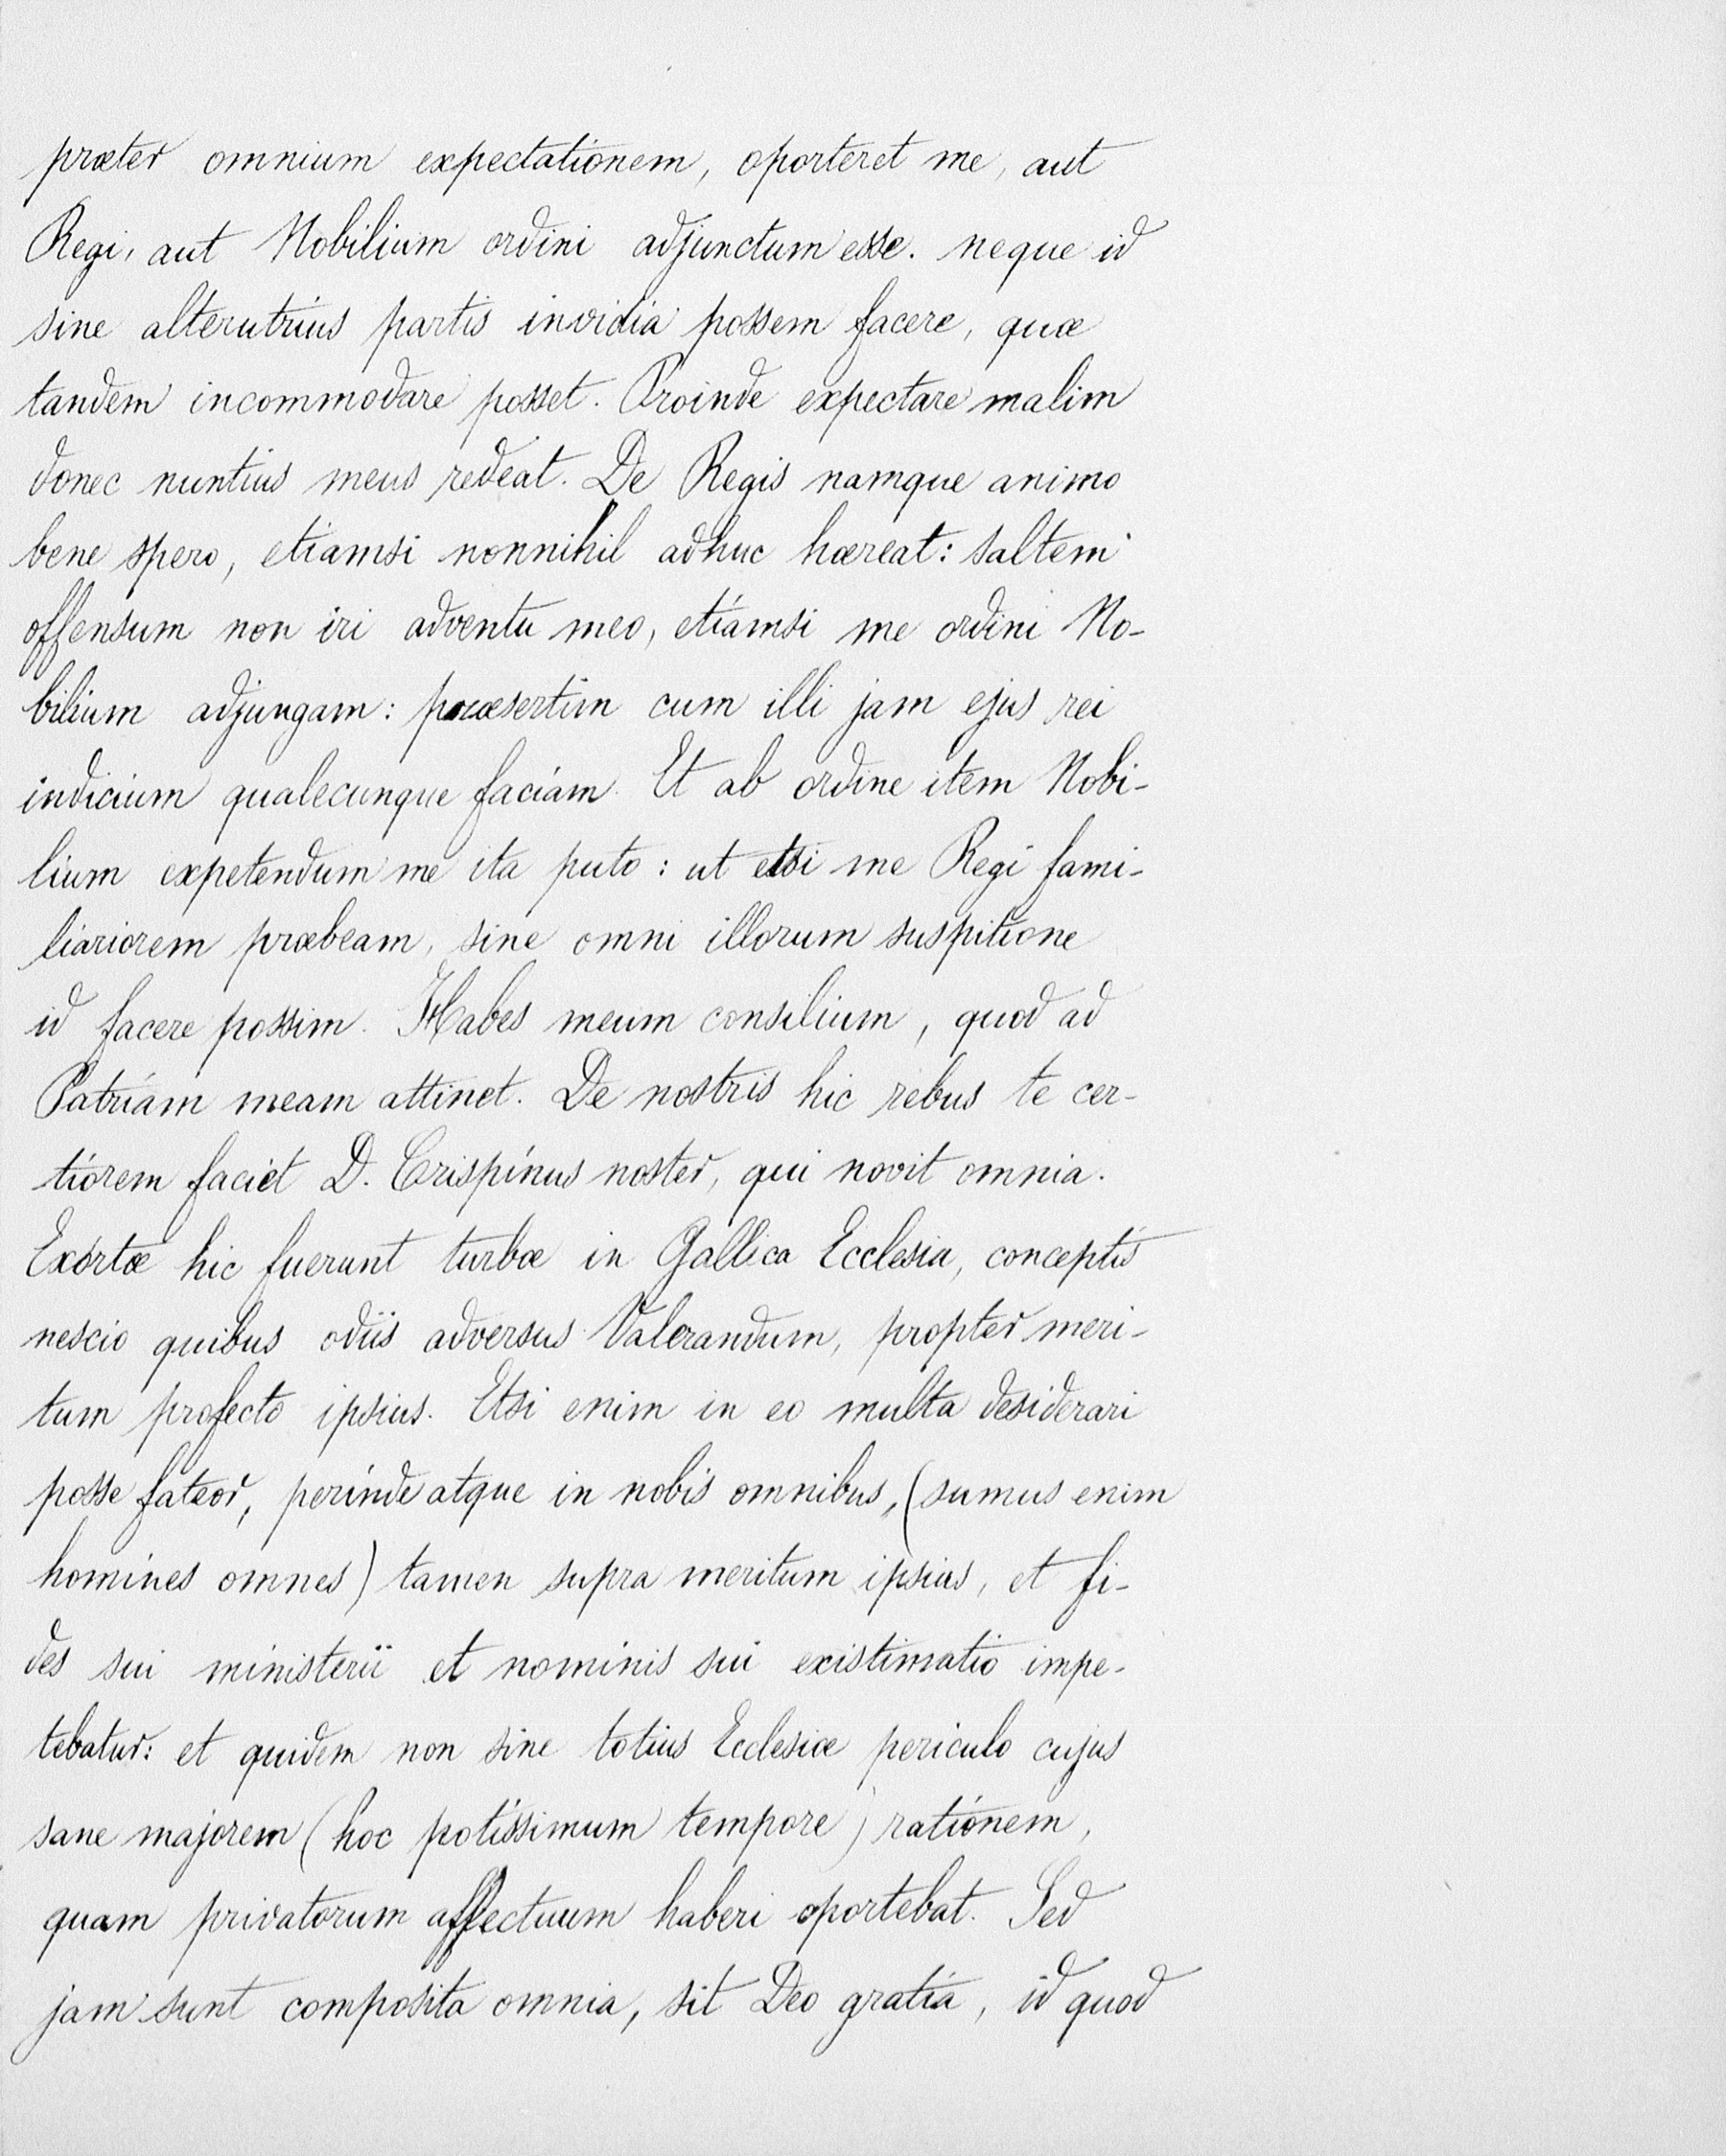 præter omnium expectationem, oporteret me, aut
Regi, aut Nobilium ordini adjunctum esse. neque id
sine alterutrius partis invidia possem facere, quæ
tandem incommodare posset. Proinde expectare malim
donec nuntius meus redeat. De Regis namque animo
bene spero, etiamsi nonnihil adhuc hæreat: saltem
offensum non iri adventu meo, etiamsi me ordini No-
bilium adjungam: præsertim cum illi jam ejus rei
indicium qualecunque faciam. Et ab ordine item Nobi-
lium expetendum me ita puto: ut etsi me Regi fami-
liariorem præbeam, sine omni illorum suspitione
id facere possim. Habes meum consilium, quod ad
Patriam meam attinet. De nostris hic rebus te cer-
tiorem faciet D. Crispinus noster, qui novit omnia.
Exortæ hic fuerunt turbæ in Gallica Ecclesia, conceptis
nescio quibus odiis adversus Valerandum, propter meri-
tum profecto ipsius. Etsi enim in eo multa desiderari
posse fateor, perinde atque in nobis omnibus, (sumus enim
homines omnes) tamen supra meritum ipsius, et fi-
des sui ministerii et nominis sui existimatio impe-
tebatur: et quidem non sine totius Ecclesiæ periculo cujus
sane majorem (hoc potissimum tempore) rationem,
quam privatorum affectuum haberi oportebat. Sed
jam sunt composita omnia, sit Deo gratia, id quod